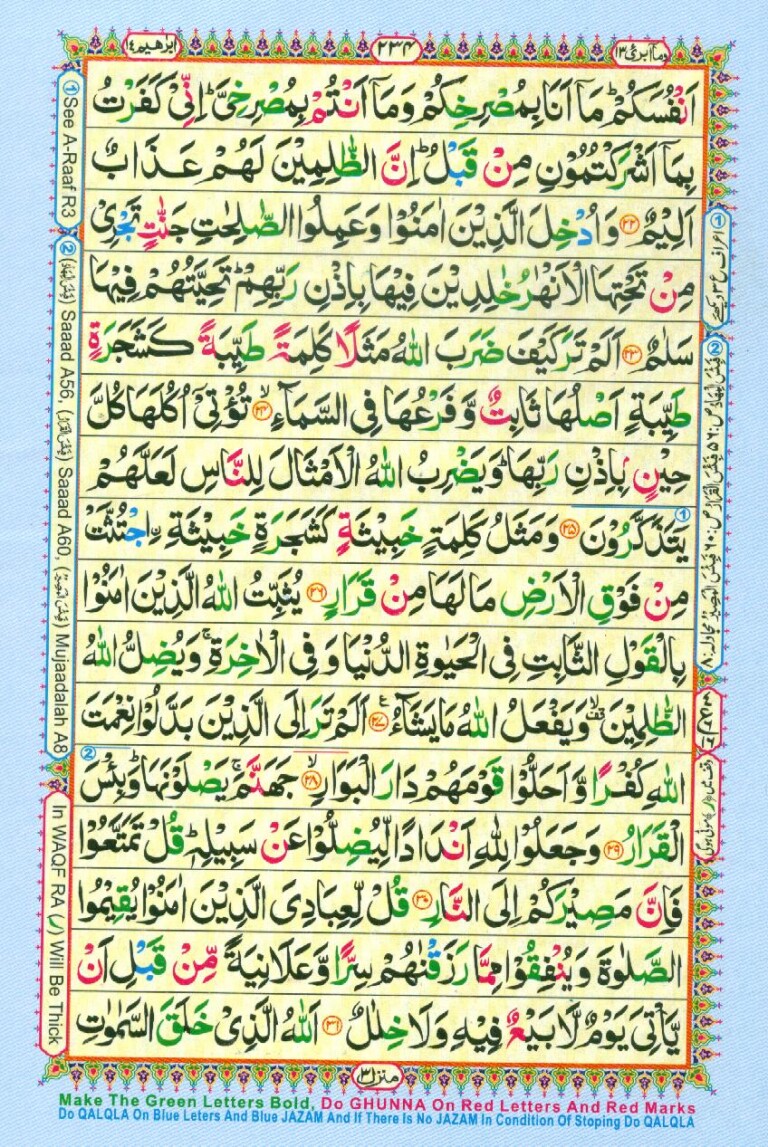 وماابرئ ١٣
٢٣٤
ابرٰهيم ١٤
اَنْفُسَكُمْ ؕ مَاۤ اَنَا بِمُصْرِخِكُمْ وَمَاۤ اَنْتُمْ بِمُصْرِخِىَّ ؕ اِنِّىْ كَفَرْتُ
بِمَاۤ اَشْرَكْتُمُوْنِ مِنْ قَبْلُ ؕ اِنَّ الظّٰلِمِيْنَ لَهُمْ عَذَابٌ
اَلِيْمٌ ﴿۲۲﴾ وَاُدْخِلَ الَّذِيْنَ اٰمَنُوْا وَعَمِلُوا الصّٰلِحٰتِ جَنّٰتٍ تَجْرِىْ
مِنْ تَحْتِهَا الْاَنْهٰرُ خٰلِدِيْنَ فِيْهَا بِاِذْنِ رَبِّهِمْ ؕ تَحِيَّتُهُمْ فِيْهَا
سَلٰمٌ ﴿۲۳﴾ اَلَمْ تَرَ كَيْفَ ضَرَبَ اللّٰهُ مَثَلًا كَلِمَةً طَيِّبَةً كَشَجَرَةٍ
طَيِّبَةٍ اَصْلُهَا ثَابِتٌ وَّفَرْعُهَا فِى السَّمَآءِ ۙ﴿۲۴﴾ تُؤْتِىْۤ اُكُلَهَا كُلَّ
حِيْنٍۢ بِاِذْنِ رَبِّهَا ؕ وَيَضْرِبُ اللّٰهُ الْاَمْثَالَ لِلنَّاسِ لَعَلَّهُمْ
يَتَذَكَّرُوْنَ ﴿۲۵﴾ وَمَثَلُ كَلِمَةٍ خَبِيْثَةٍ كَشَجَرَةٍ خَبِيْثَةِ ۟اجْتُثَّتْ
مِنْ فَوْقِ الْاَرْضِ مَا لَهَا مِنْ قَرَارٍ ﴿۲۶﴾ يُثَبِّتُ اللّٰهُ الَّذِيْنَ اٰمَنُوْا
بِالْقَوْلِ الثَّابِتِ فِى الْحَيٰوةِ الدُّنْيَا وَفِى الْاٰخِرَةِ ۚ وَيُضِلُّ اللّٰهُ
الظّٰلِمِيْنَ ۙ وَيَفْعَلُ اللّٰهُ مَا يَشَآءُ ﴿۲۷﴾ اَلَمْ تَرَ اِلَى الَّذِيْنَ بَدَّلُوْا نِعْمَتَ
اللّٰهِ كُفْرًا وَّاَحَلُّوْا قَوْمَهُمْ دَارَ الْبَوَارِ ۙ﴿۲۸﴾ جَهَنَّمَ ۚ يَصْلَوْنَهَا ؕ وَبِئْسَ
الْقَرَارُ ﴿۲۹﴾ وَجَعَلُوْا لِلّٰهِ اَنْدَادًا لِّيُضِلُّوْا عَنْ سَبِيْلِهٖ ؕ قُلْ تَمَتَّعُوْا
فَاِنَّ مَصِيْرَكُمْ اِلَى النَّارِ ﴿۳۰﴾ قُلْ لِّعِبَادِىَ الَّذِيْنَ اٰمَنُوْا يُقِيْمُوا
الصَّلٰوةَ وَيُنْفِقُوْا مِمَّا رَزَقْنٰهُمْ سِرًّا وَّعَلَانِيَةً مِّنْ قَبْلِ اَنْ
يَّاْتِىَ يَوْمٌ لَّا بَيْعٌ فِيْهِ وَلَا خِلٰلٌ ﴿۳۱﴾ اَللّٰهُ الَّذِىْ خَلَقَ السَّمٰوٰتِ
منزل ٣
① See A-Raaf R3
② (فَبِئْسَ الْمِهَادُ) Saaad A56, (فَبِئْسَ الْقَرَارُ) Saaad A60, (فَبِئْسَ الْمَصِيْرُ) Mujaadalah A8
In WAQF RA (ر) Will Be Thick
① اعراف ع ٣ دیکھئے
② فَبِئْسَ الْمِهَادُ صٓ:٥٦ فَبِئْسَ الْقَرَارُ صٓ:٦٠ فَبِئْسَ الْمَصِيْرُ مجادلہ:٨
Make The Green Letters Bold, Do GHUNNA On Red Letters And Red Marks
Do QALQLA On Blue Leters And Blue JAZAM And If There Is No JAZAM In Condition Of Stoping Do QALQLA